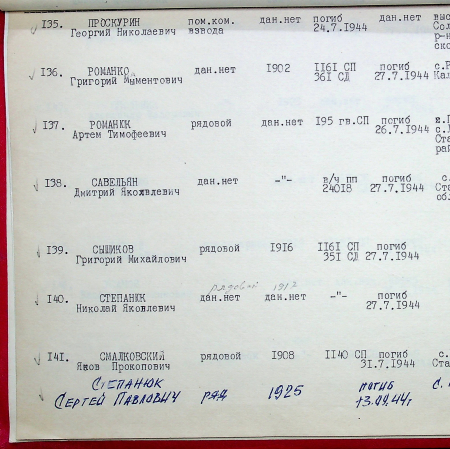 135. ПРОСКУРИН пом.ком. дан.нет погиб дан.нет выс
Георгий Николаевич взвода 24.7.1944 Сол
р-н
ско
136. РОМАНКО дан.нет 1902 1161 СП погиб с.Р
Григорий Мыментович 361 СД 27.7.1944 Кал
137. РОМАНЮК рядовой дан.нет 195 гв.СП погиб
Артем Тимофеевич 26.7.1944 с.
Ста
рай
138. САВЕЛЬЯН дан.нет -"- в/ч пп погиб с.
Дмитрий Яковлевич 24018 27.7.1944 Ста
об
139. СЫЩИКОВ рядовой 1916 1161 СП погиб
Григорий Михайлович 351 СД 27.7.1944
рядовой 1912
140. СТЕПАНЮК дан.нет дан.нет -"- погиб
Николай Яковлевич 27.7.1944
141. СМАЛКОВСКИЙ рядовой 1908 1140 СП погиб с.
Яков Прокопович 31.7.1944 Ста
СТЕПАНЮК погиб с.
СЕРГЕЙ ПАВЛОВИЧ ряд 1925 13.09.44г